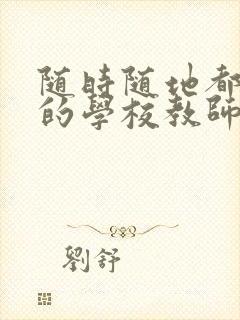 随時随地都
的學校教師
劉舒